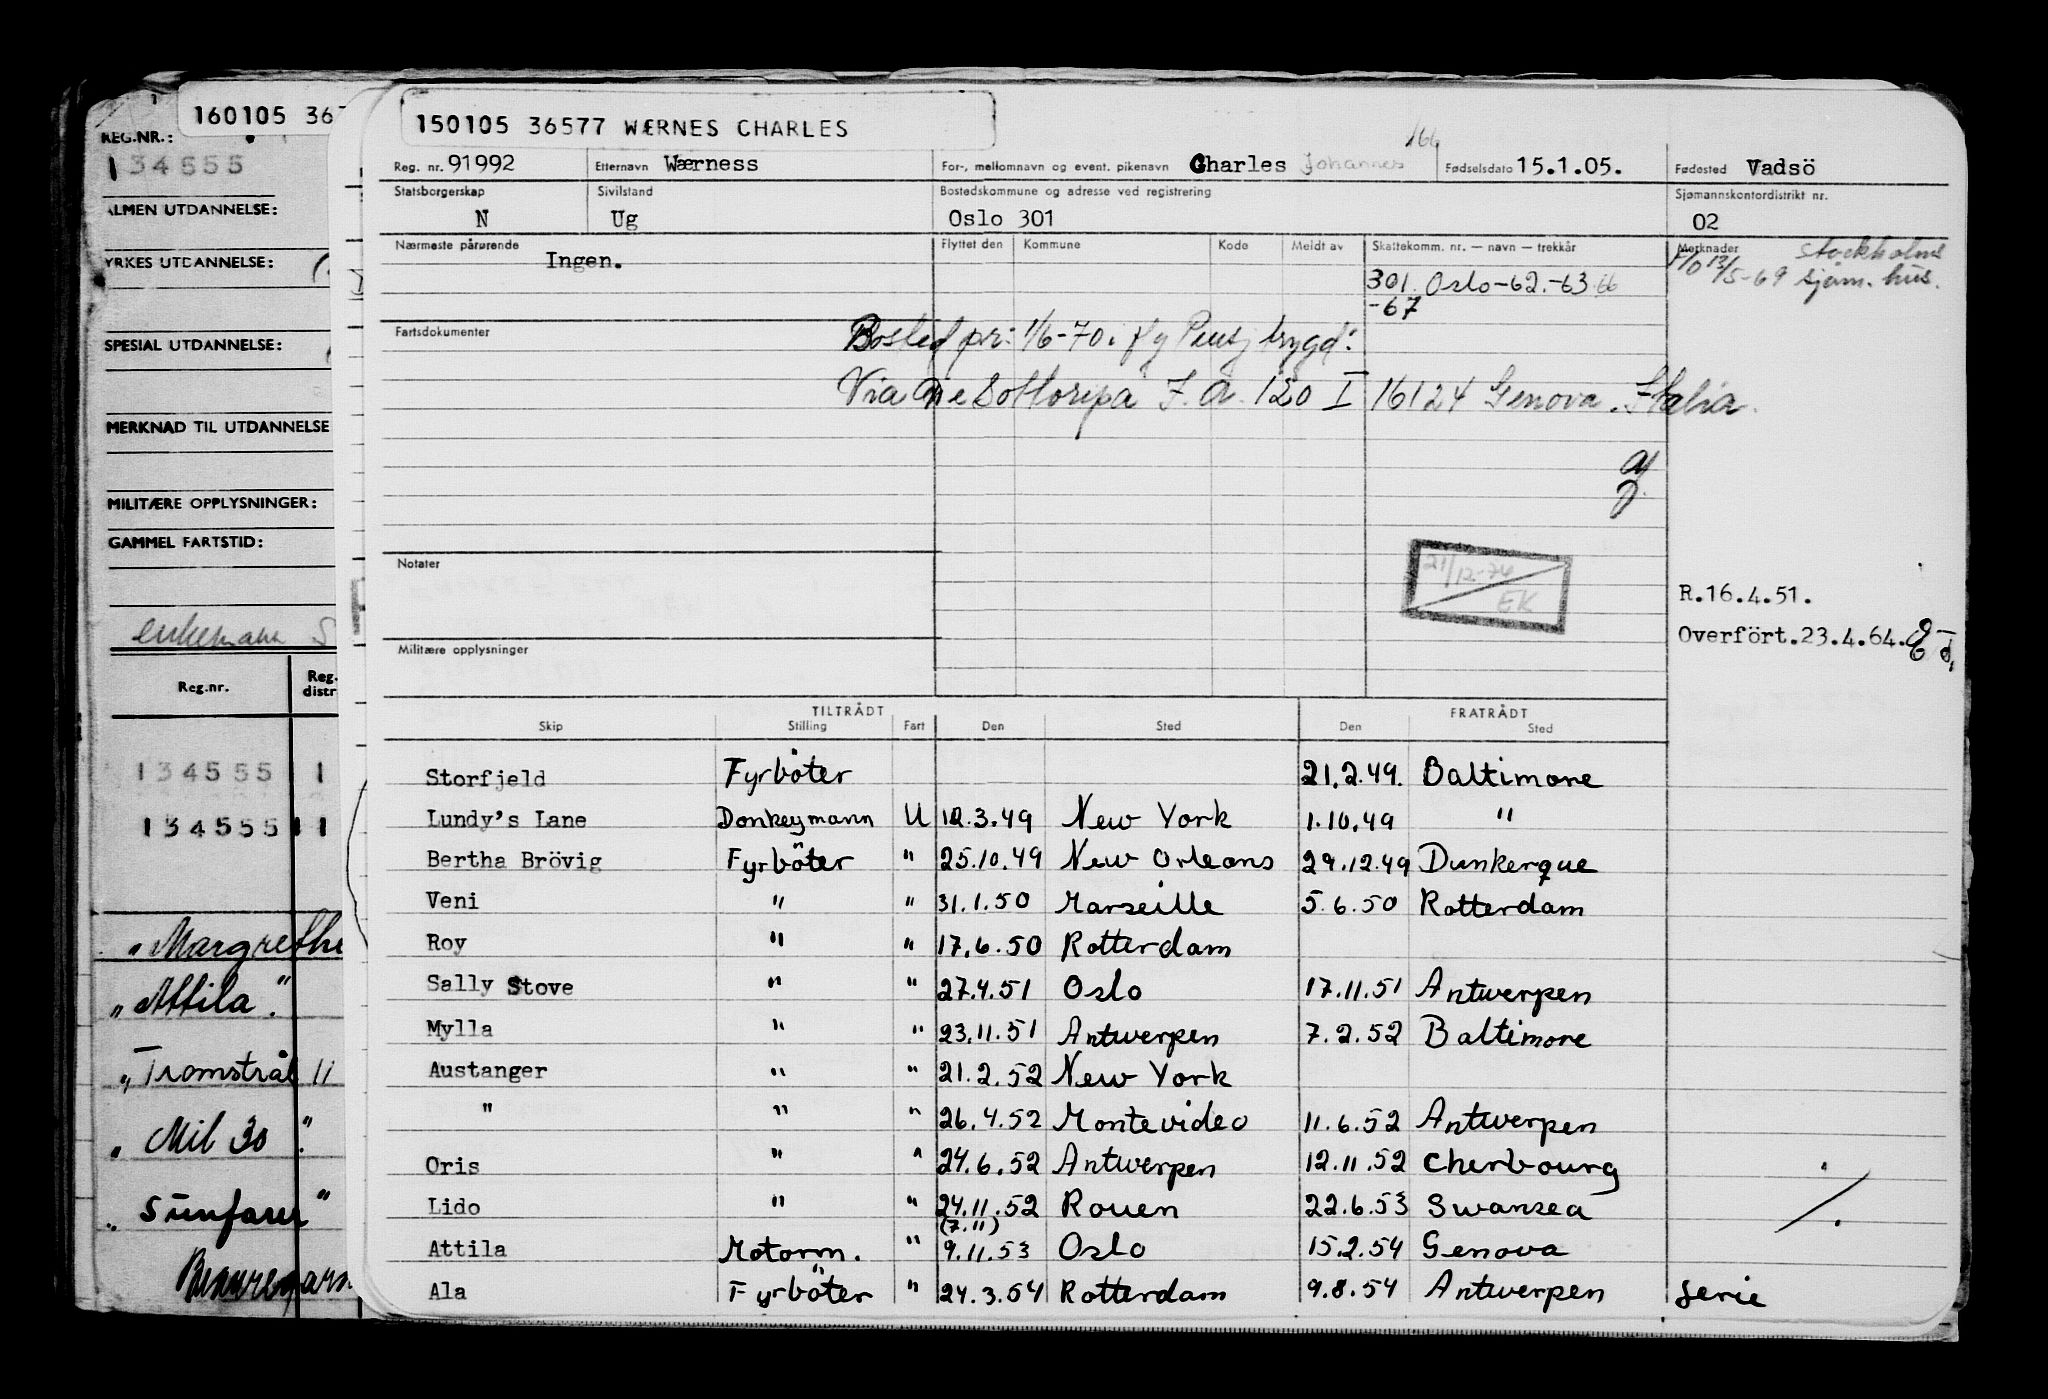 160105 36
REG.NR.:
134555
ALMEN UTDANNELSE:
YRKES UTDANNELSE:
SPESIAL UTDANNELSE:
MERKNAD TIL UTDANNELSE
MILITÆRE OPPLYSNINGER:
GAMMEL FARTSTID:
enkemann S
Reg.nr. Reg. distr
134555 1
134555 11
"Margrethe
"Attila".
"Tromstrål 11
" Mil 30 ".
"Sunfarer"
150105 36577 WÆRNES CHARLES
166
Reg. nr. 91992 Etternavn Wærness For-, mellomnavn og event. pikenavn Charles Johannes Fødselsdato 15.1.05. Fødested Vadsö
Statsborgerskap Sivilstand Bostedskommune og adresse ved registrering Sjømannskontordistrikt nr.
N Ug Oslo 301 02
Nærmeste pårørende Flyttet den Kommune Kode Meldt av Skattekomm. nr. — navn — trekkår Merknader Stockholms
Ingen. 13/5-69 sjøm. hus.
301 Oslo-62.-63 66
-67
Fartsdokumenter Bosted pr: 1/6-70
Via 120 I 16124 Genova. Italia.
21/12-74
EK
Notater
R.16.4.51.
Overfört.23.4.64.
Militære opplysninger
TILTRÅDT FRATRÅDT
Skip Stilling Fart Den Sted Den Sted
Storfjeld Fyrböter 21.2.49. Baltimore
Lundy's Lane Donkeymann U 12.3.49 New York 1.10.49 "
Bertha Brövig Fyrböter " 25.10.49 New Orleans 29.12.49 Dunkerque
Veni " " 31.1.50 Marseille 5.6.50 Rotterdam
Roy " " 17.6.50 Rotterdam
Sally Stove " " 27.4.51 Oslo 17.11.51 Antwerpen
Mylla " " 23.11.51 Antwerpen 7.2.52 Baltimore
Austanger " " 21.2.52 New York
" " " 26.4.52 Montevideo 11.6.52 Antwerpen
Oris " " 24.6.52 Antwerpen 12.11.52 Cherbourg
Lido " " 24.11.52 Rouen 22.6.53 Swansea
(7.11)
Attila Motorm. " 9.11.53 Oslo 15.2.54 Genova
Ala Fyrböter " 24.3.54 Rotterdam 9.8.54 Antwerpen Serie